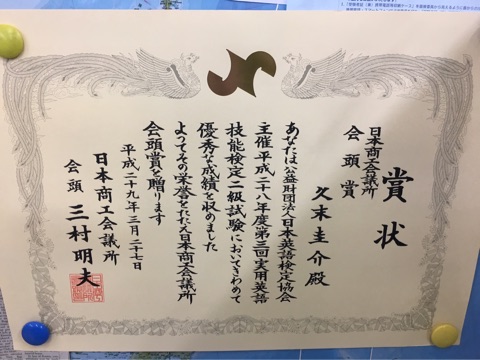 賞状
日本商工会議所
会頭賞
久末圭介殿
あなたは公益財団法人日本英語検定協会
主催平成二十八年度第三回実用英語
技能検定二級試験においてきわめて
優秀な成績を収めました
よってその栄誉をたたえ日本商工会議所
会頭賞を贈ります
平成二十九年三月二十七日
日本商工会議所
会頭 三村明夫